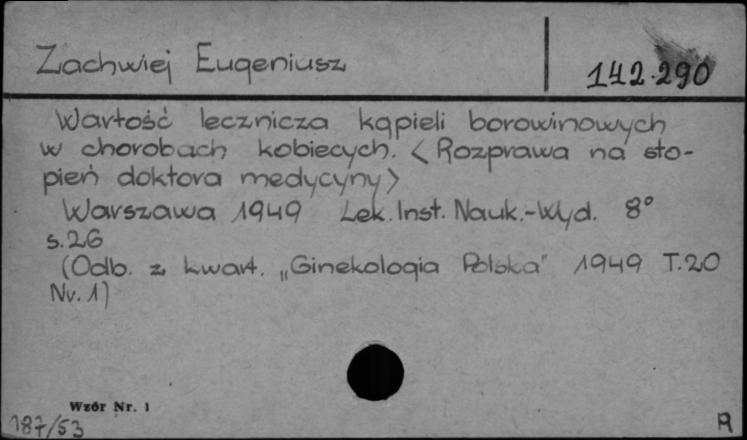 Zachwiej Eugeniusz
142.290
Wartość lecznicza kąpieli borowinowych
w chorobach kobiecych. < Rozprawa na sto-
pień doktora medycyny >
Warszawa 1949 Lek. Inst. Nauk.-Wyd. 8°
s. 26
(Odb. z kwart. „Ginekologia Polska" 1949 T. 20
Nr. 1)
Wzór Nr. 1
187/53
R